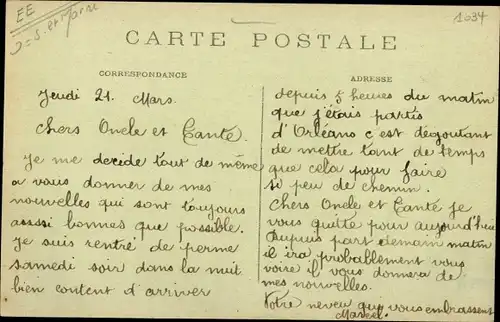 EE
1034
CARTE POSTALE
CORRESPONDANCE
Jeudi 21. Mars.
Chers Oncle et Tante.
Je me décide tout de même
a vous donner de mes
nouvelles qui sont toujours
aussi bonnes que possible.
Je suis rentré de perme
samedi soir dans la nuit
bien content d'arriver
ADRESSE
depuis 5 heures du matin
que j'étais partis
d'Orléans c'est dégoutant
de mettre tant de temps
que cela pour faire
si peu de chemin.
Chers Oncle et Tante je
vous quitte pour aujourd'hui
Dupuis part demain matin
il ira probablement vous
voire il vous donnera de
mes nouvelles.
Votre neveu qui vous embrassent
Marcel.